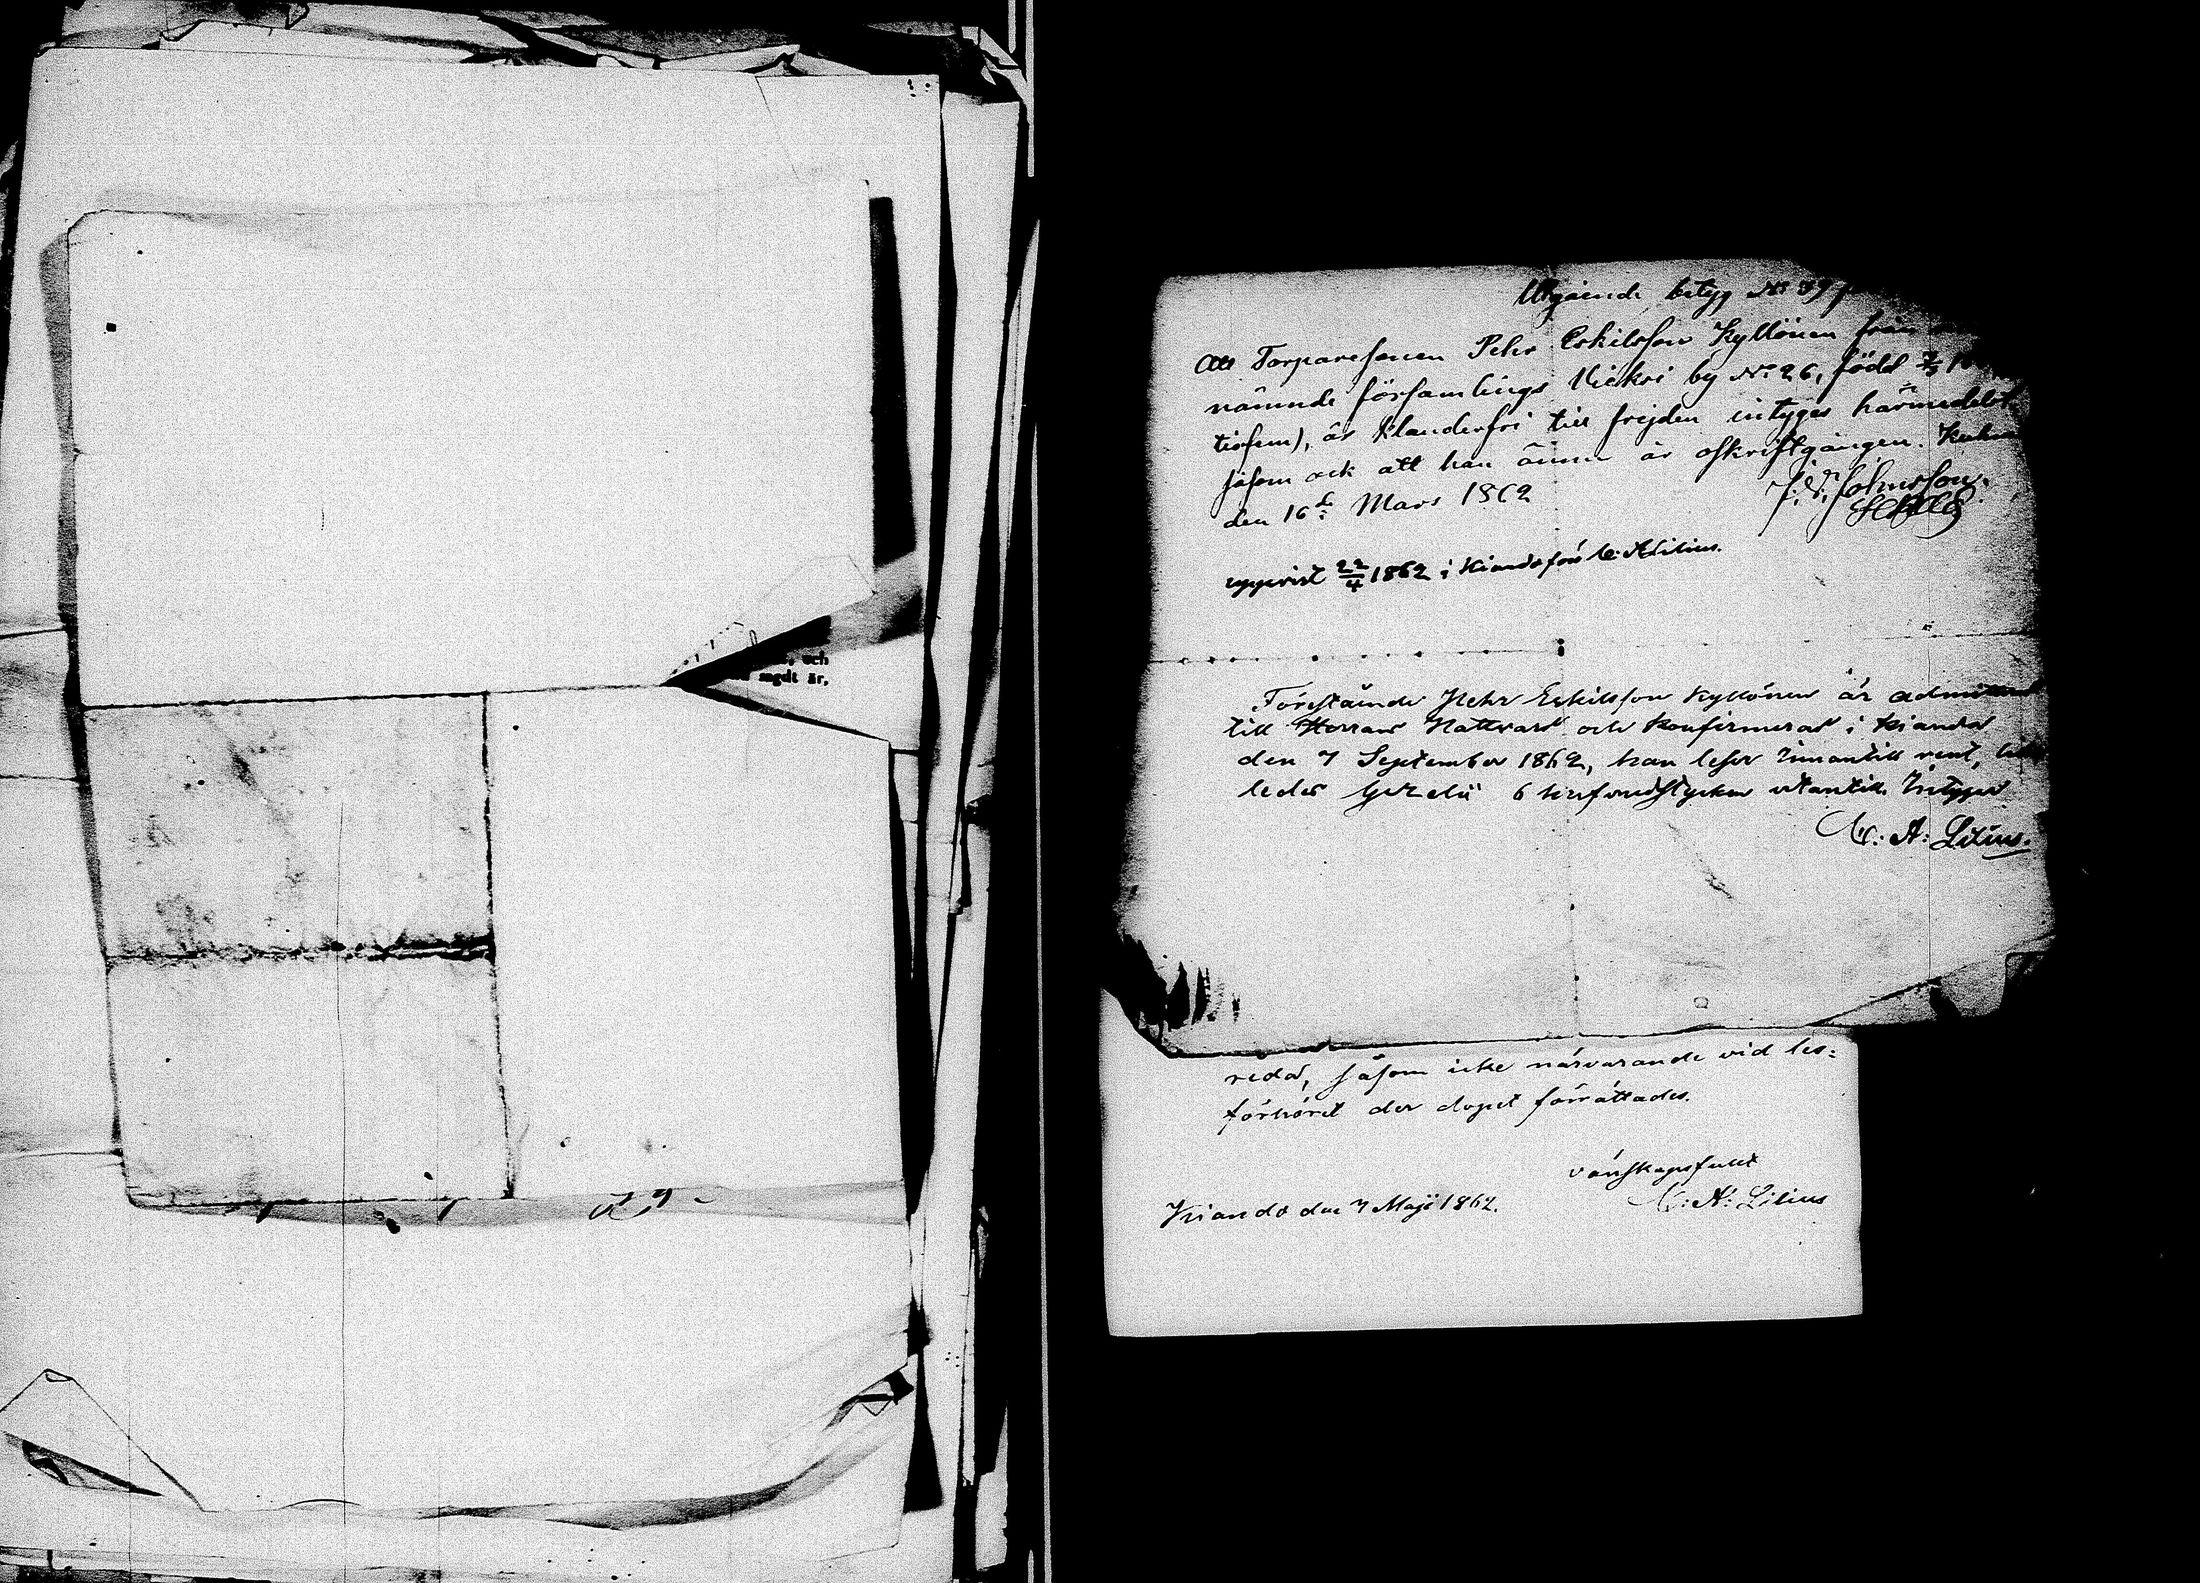 och
sagdt är,
Utgående betyg No 39
Att Torparesonen Pehr Eskilsson Kyllönen från
nämnde församlings Vieksi by No 26, född
tiofem), är klanderfri till frejden intyges härmedelst
såsom ock att han ännu är oskriftgången. Kuhmo
den 16de Mars 1862
J. F. Johnsson
uppvist 22/4 1862 i Kianda för C. A. Lilius.
Förestående Pehr Eskilsson Kyllönen är admitterad
till Herrans Nattvard och konfirmerad i Kianda
den 7 September 1862, han leser innantill rent,
ledes 6 hufvudstycken utantill. Intygar
C: A: Lilius.
reda, såsom icke närvarande vid läs-
förhöret der dopet förrättades.
vänskapsfullt
Kianda den 7 Maji 1862.
C: A: Lilius